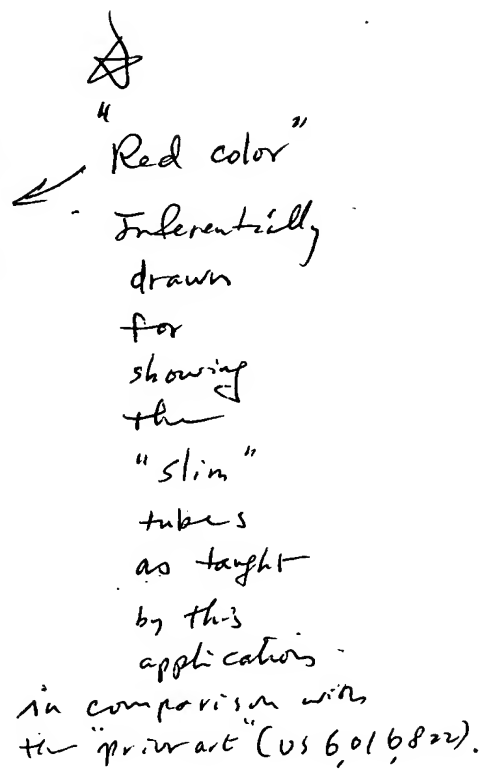 "Red color"
Inferentially
drawn
for
showing
the
"slim"
tubes
as taught
by this
application
in comparison with
the "prior art" (US 6,016,822).